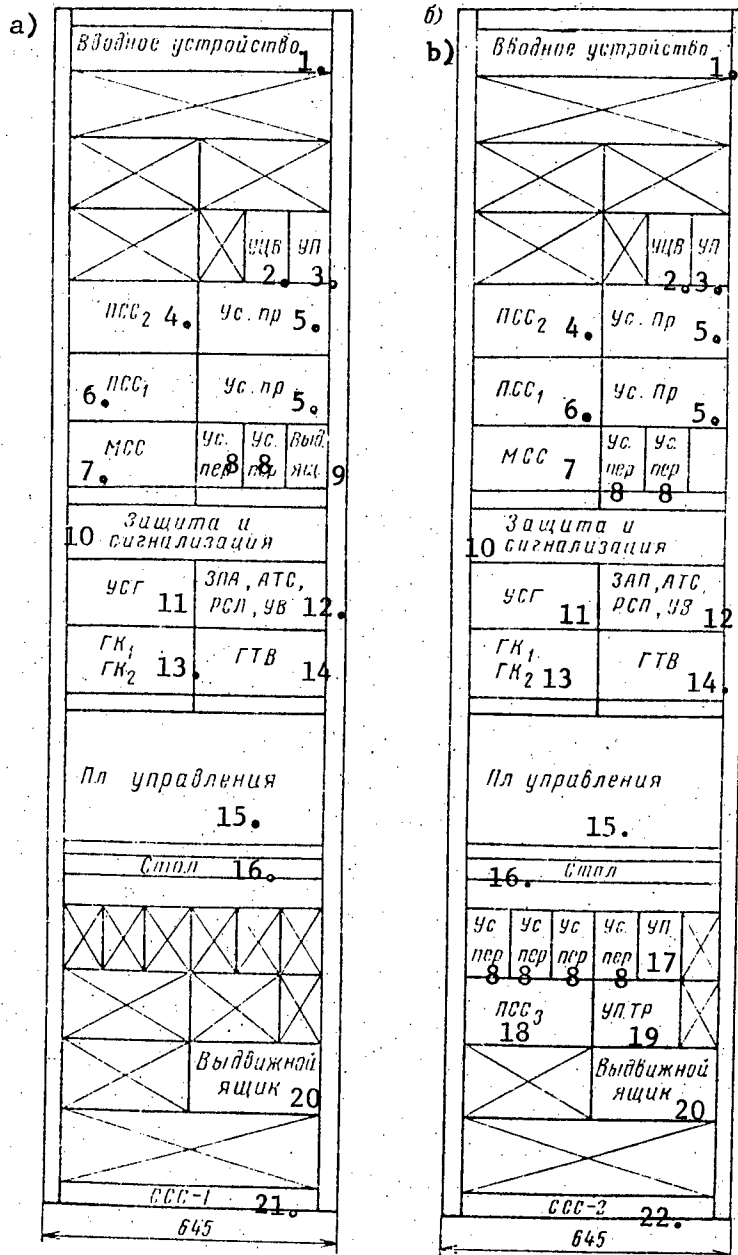 а)
Вводное устройство 1.
УЦВ УП
2. 3.
ПСС2 4. Ус. пр 5.
6. ПСС1 Ус. пр 5.
7. МСС Ус. пер 8 Ус. пер 8 Выд. ящ. 9
10 Защита и
сигнализация
УСГ 11 ЗПА, АТС,
РСЛ, УВ 12.
ГК1
ГК2 13. ГТВ 14
Пл управления
15.
Стол 16.
Выдвижной
ящик 20
ССС-1 21.
645
б)
b)
Вводное устройство
1.
УЦВ УП
2. 3.
ПСС2 4. Ус. Пр 5.
ПСС1 6. Ус. Пр 5.
МСС 7 Ус. пер 8 Ус. пер 8
10 Защита и
сигнализация
УСГ 11 ЗАП, АТС,
РСП, УВ 12
ГК1
ГК2 13 ГТВ 14.
Пл управления
15.
16. Стол
Ус Ус Ус Ус. УП
пер пер пер пер 17
8 8 8 8
ПСС3 УП.ТР
18 19
Выдвижной
ящик 20
ССС-2 22.
645